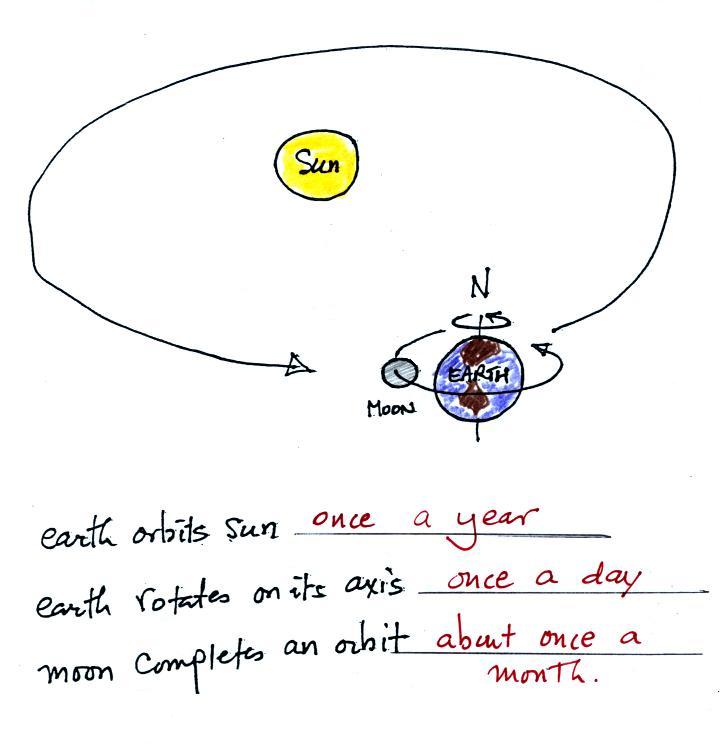 Sun
N
EARTH
MOON
earth orbits Sun once a year
earth rotates on its axis once a day
moon completes an orbit about once a
month.